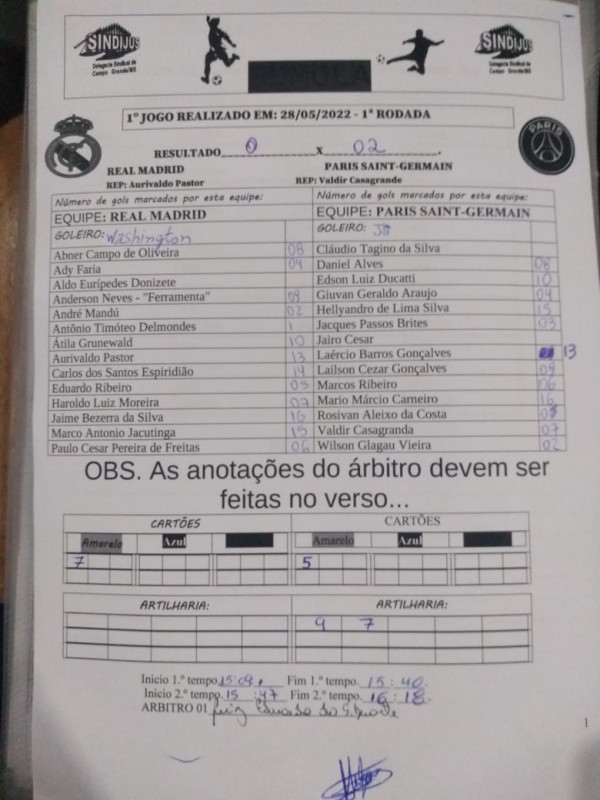 SINDIJUS SINDIJUS
Delegacia Sindical de Delegacia Sindical de
Campo Grande/MS Campo Grande/MS
1º JOGO REALIZADO EM: 28/05/2022 - 1ª RODADA
PARIS
RESULTADO 0 x 02
REAL MADRID PARIS SAINT-GERMAIN
REP: Aurivaldo Pastor REP: Valdir Casagrande
Número de gols marcados por esta equipe: Número de gols marcados por esta equipe:
EQUIPE: REAL MADRID EQUIPE: PARIS SAINT-GERMAIN
GOLEIRO: Washington GOLEIRO:
Abner Campo de Oliveira 08 Cláudio Tagino da Silva
Ady Faria 04 Daniel Alves 08
Aldo Eurípedes Donizete Edson Luiz Ducatti 10
Anderson Neves - "Ferramenta" 09 Giuvan Geraldo Araujo 04
André Mandú 02 Hellyandro de Lima Silva 15
Antônio Timóteo Delmondes 1 Jacques Passos Brites 03
Átila Grunewald 10 Jairo Cesar
Aurivaldo Pastor 13 Laércio Barros Gonçalves 13
Carlos dos Santos Espiridião 14 Lailson Cezar Gonçalves 09
Eduardo Ribeiro 05 Marcos Ribeiro 06
Haroldo Luiz Moreira 07 Mario Márcio Carneiro 16
Jaime Bezerra da Silva 16 Rosivan Aleixo da Costa
Marco Antonio Jacutinga 15 Valdir Casagranda 07
Paulo Cesar Pereira de Freitas 06 Wilson Glagau Vieira 02
OBS. As anotações do árbitro devem ser
feitas no verso...
CARTÕES CARTÕES
Amarelo Azul Amarelo Azul
7 5
ARTILHARIA: ARTILHARIA:
9 7
Inicio 1.º tempo 15:09. Fim 1.º tempo. 15:40.
Inicio 2.º tempo. 15:47 Fim 2.º tempo. 16:18.
ARBITRO 01
1